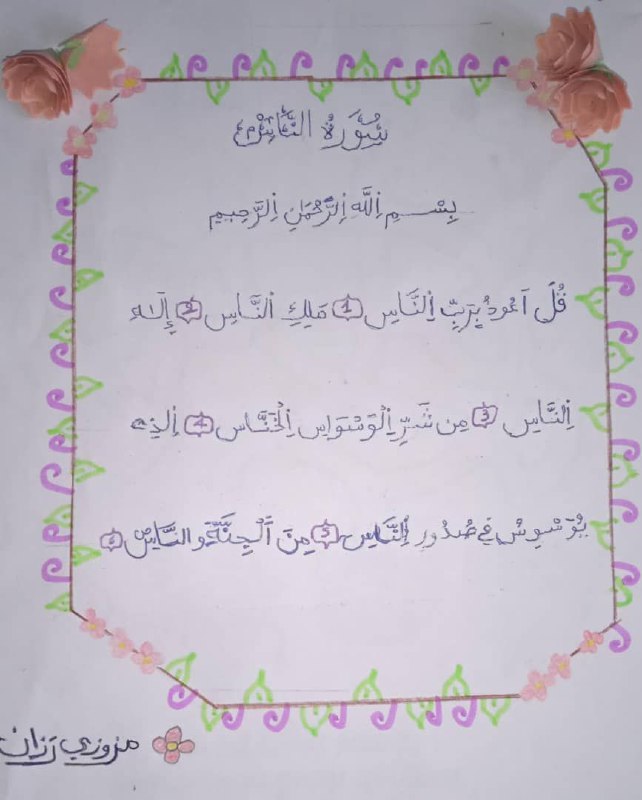 سُورَةُ النَّاسِ
بِسْمِ اِللَّهِ اِلرَّحْمَٰنِ اِلرَّحِيمِ
قُلَ اَعُوذُ بِرَبِّ اِلنَّاسِ 1 مَلِكِ اِلنَّاسِ 2 إِلَٰهِ
اِلنَّاسِ 3 مِن شَرِّ اِلْوَسْوَاسِ اِلْخَنَّاسِ 4 اِلذِے
يُوَسْوِسُ فِي صُدُورِ اِلنَّاسِ 5 مِنَ اَلْجِنَّةِ وَالنَّاسِ 6
مزوزي رزان